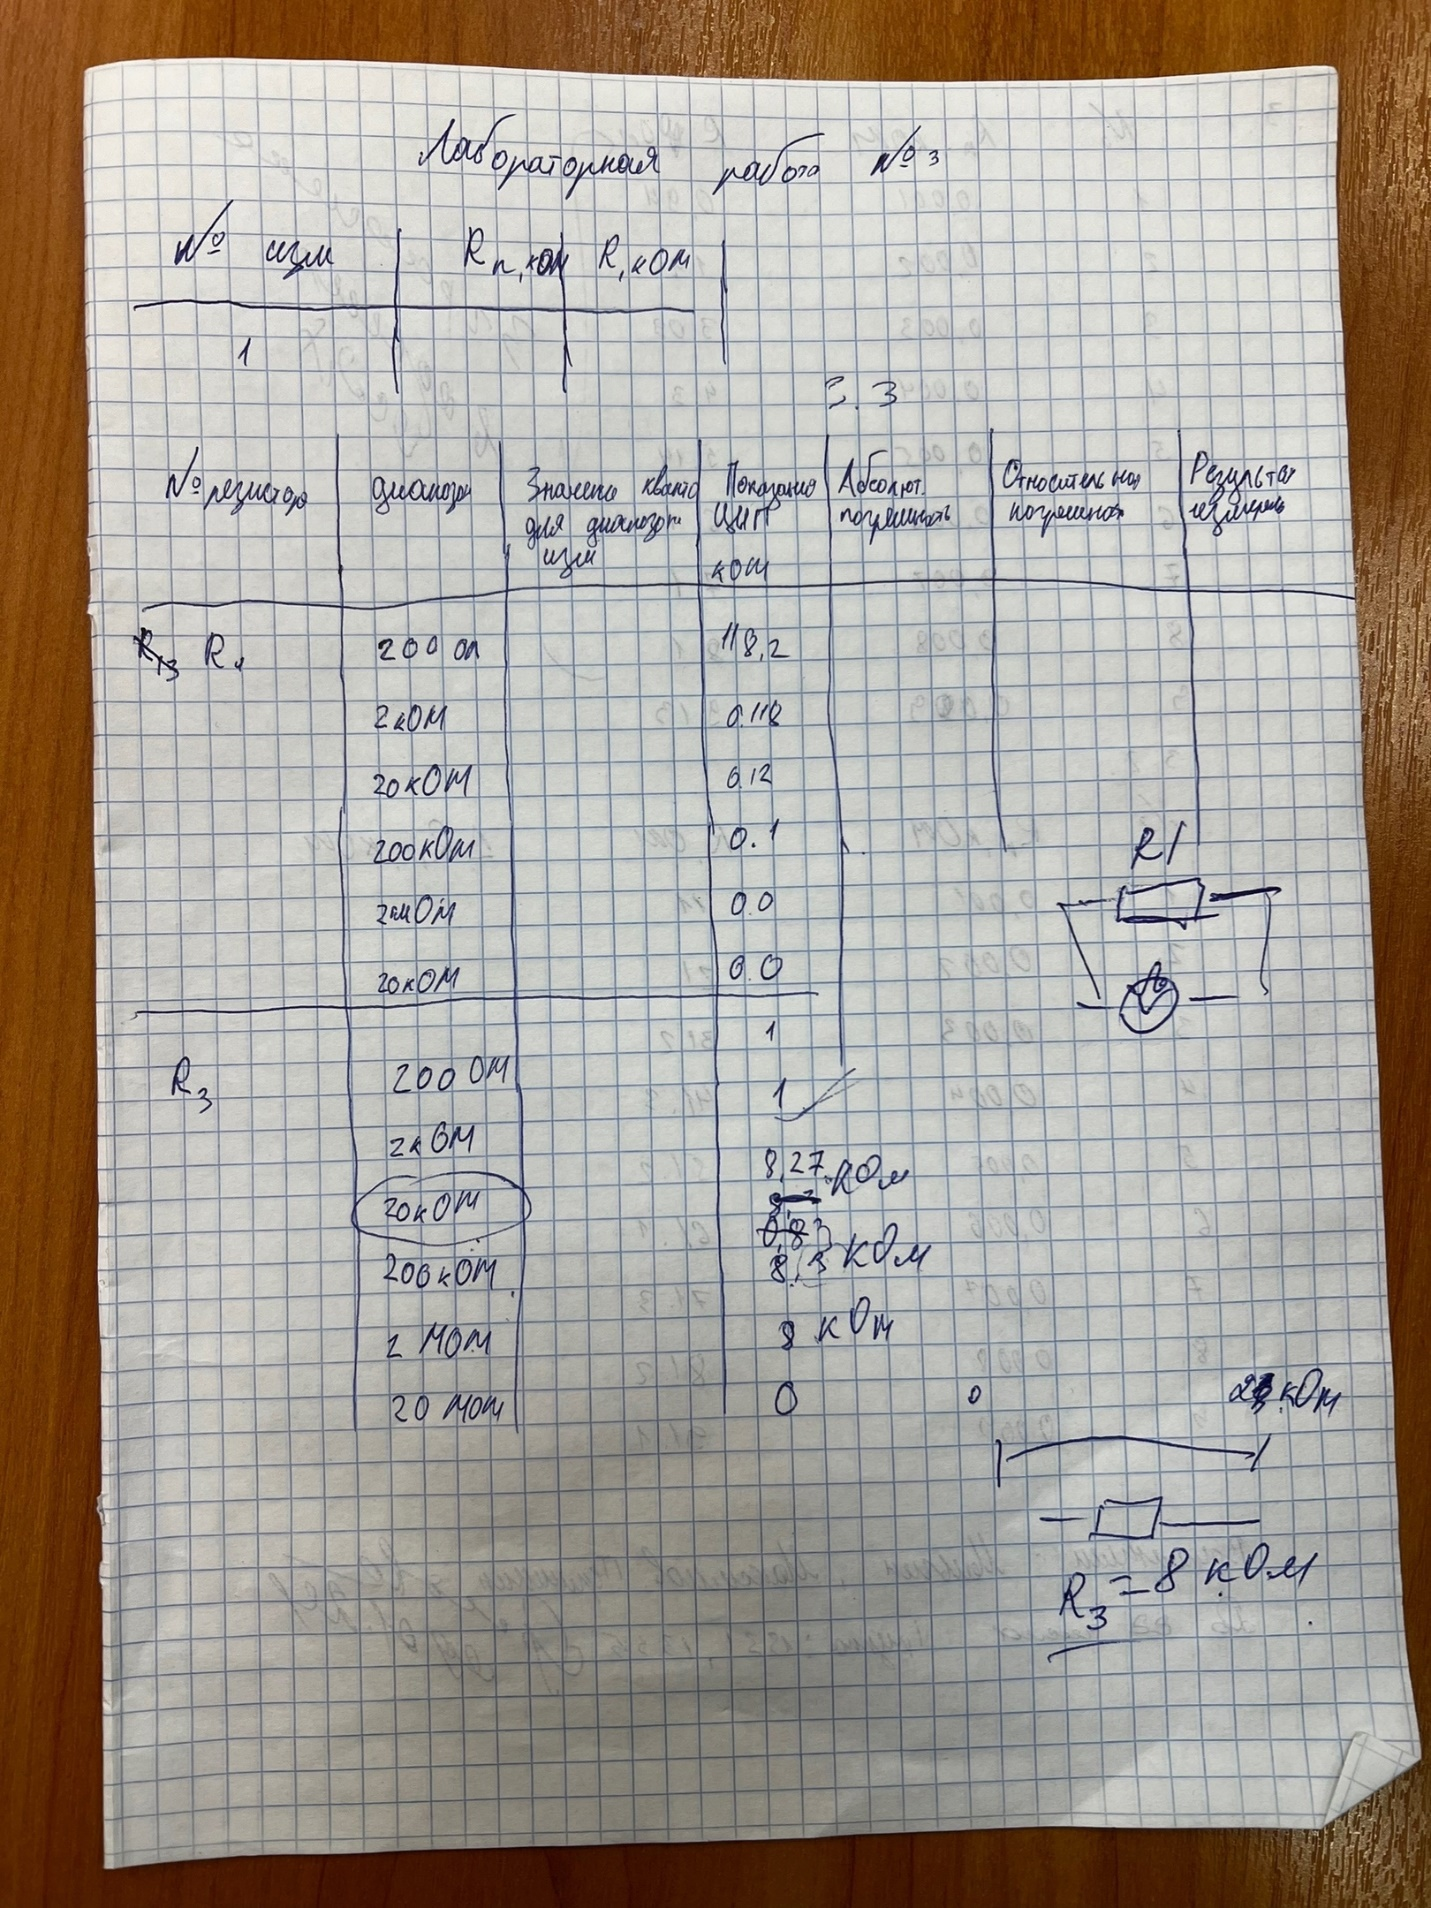 Лабораторная работа №3
№ изм Rп, кОм R, кОм
1
3.3
№ резистора диапазон Значение кванта для диапазон изм Показания ЦИП кОм Абсолют. погрешность Относительная погрешность Результат измерень
R1 200 Ом 118,2
2кОм 0.118
20кОм 0.12
200кОм 0.1
2мОм 0.0
20кОм 0.0
R1
1
R3 200 Ом 1
2кОм 8,27 кОм
20кОм 0,83
200кОм 8,3 кОм
2 МОм 8 кОм
20 МОм 0 0 кОм
R3 = 8 кОм